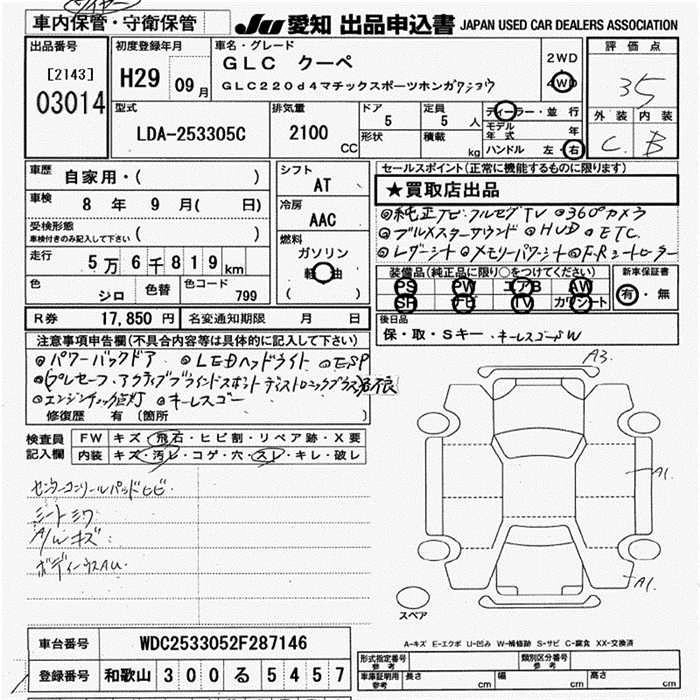 車内保管・守衛保管
愛知 出品申込書 JAPAN USED CAR DEALERS ASSOCIATION
出品番号
[2143]
03014
初度登録年月
H29 09月
車名・グレード
GLC クーペ
GLC220d4マチックスポーツホンガワシヨウ
2WD
4WD
評価点
35
外装 内装
C. B
型式
LDA-253305C
排気量
2100 CC
ドア
5
形状
定員
5 人
積載
kg
ディーラー・並行
モデル年式 年
ハンドル 左・右
車歴
自家用・( )
車検
8 年 9 月( 日)
受検形態
車検付きのみ記入して下さい ( )
走行
5万6千819km
色
シロ
色替
色コード
799
シフト
AT
冷房
AAC
燃料
ガソリン
軽油
( )
R券 17,850 円
名変通知期限 月 日
セールスポイント(正常に機能するものに限ります)
★買取店出品
◎純正ナビ・フルセグTV ◎360°カメラ
◎ブルメスターサウンド ◎HUD ◎ETC.
◎レザーシート ◎メモリーパワーシート ◎F・Rシートヒーター
装備品(純正品に限り○をつけてください)
PS PW エアB AW
SR ナビ TV カワシート
新車保証書
有・無
後日品
保・取・Sキー・キーレスゴーSW
注意事項申告欄(不具合内容等は具体的に記入して下さい)
◎パワーバックドア ◎LEDヘッドライト ◎ESP
◎エンジンチェック点灯 ◎キーレスゴー
修復歴 有 (箇所 )
検査員記入欄
FW キズ・飛石・ヒビ割・リペア跡・X要
内装 キズ・汚レ・コゲ・穴・スレ・キレ・破レ
センターコンソールパッドヒビ
シートシワ
A/Wキズ
ボディーウスAU.
A3.
A1.
A1.
スペア
A-キズ E-エクボ U-凹み W-補修跡 S-サビ C-腐食 XX-交換済
車台番号 WDC2533052F287146
登録番号 和歌山 300 る 5457
形式指定番号 参考
類別区分番号 参考
車庫証明用 参考 長さ cm 幅 cm 高さ cm